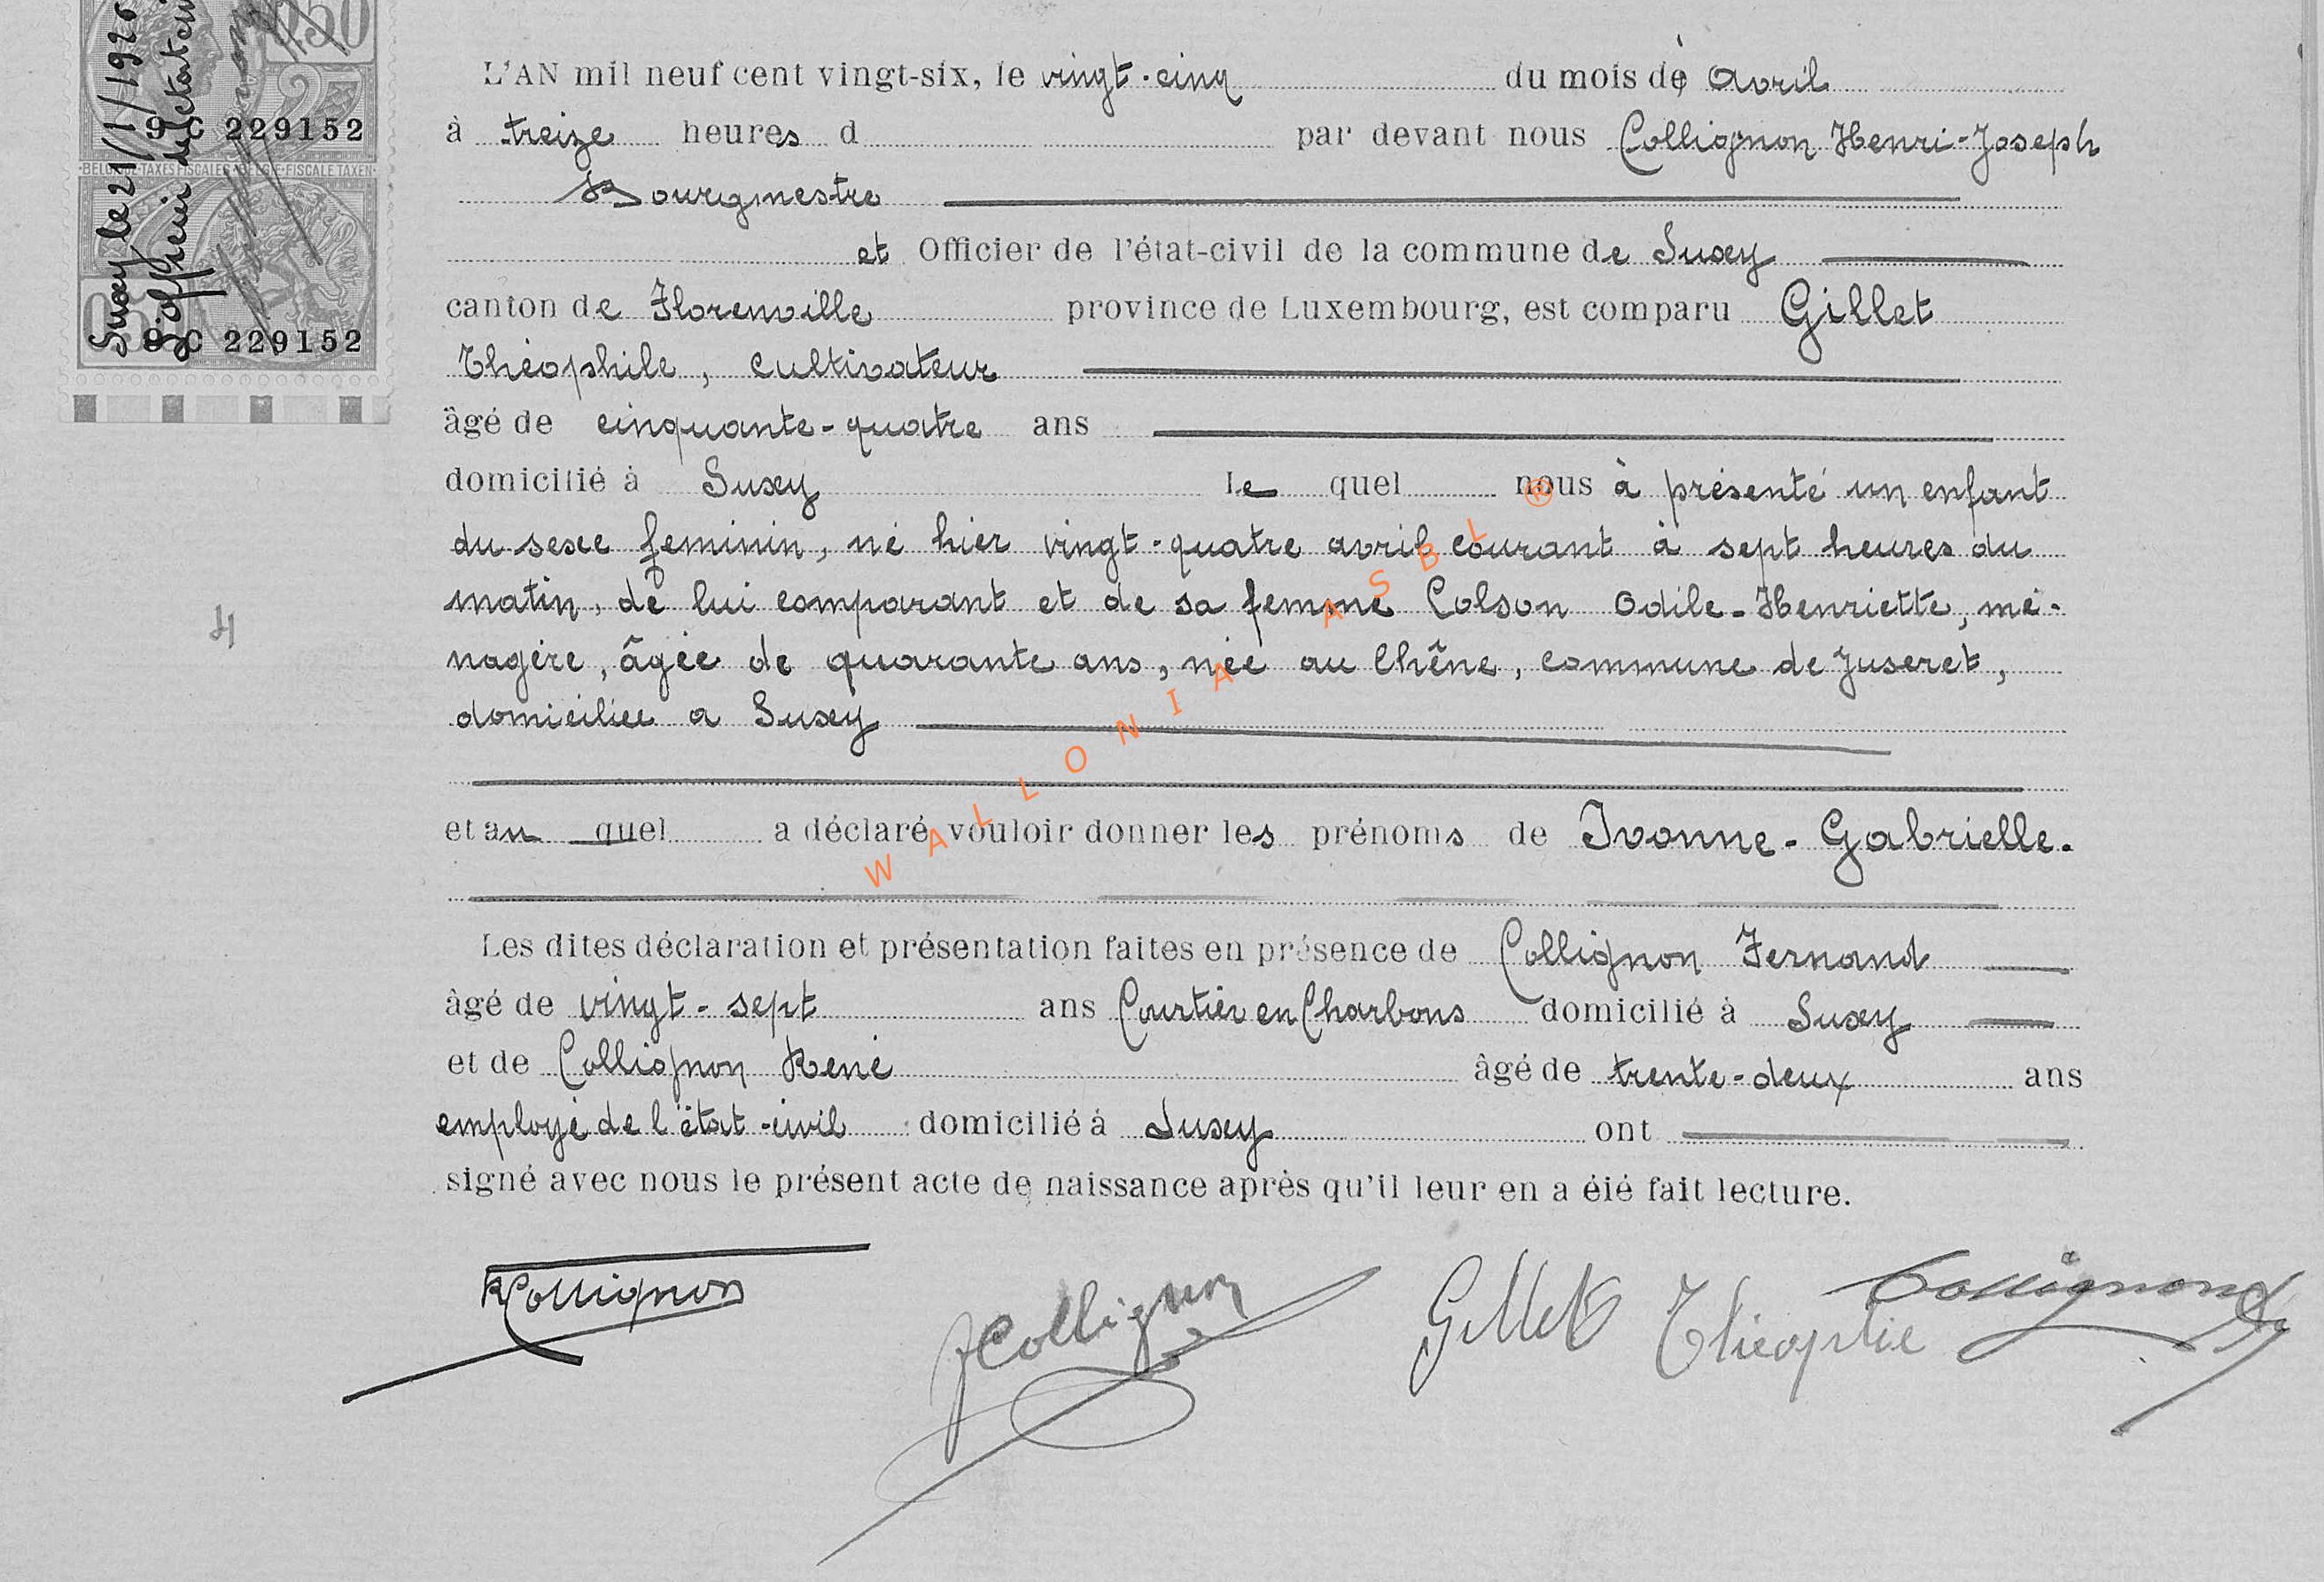 Suxy le 21/1/1926
l'officier de l'état civil
0.50
9 C 229152
BELGIQUE-TAXES FISCALES-BELGIE-FISCALE TAXEN-
9 C 229152
L'AN mil neuf cent vingt-six, le vingt-cinq du mois de Avril
à treize heures d par devant nous Collignon Henri-Joseph
Bourgmestre
et Officier de l'état-civil de la commune de Suxy
canton de Florenville province de Luxembourg, est comparu Gillet
Théophile, cultivateur
âgé de cinquante-quatre ans
domicilié à Suxy Le quel nous à présenté un enfant
du sexe feminin, né hier vingt-quatre avril courant à sept heures du
matin, de lui comparant et de sa femme Colson Odile-Henriette, mé-
nagère, âgée de quarante ans, née au Chêne, commune de Juseret,
domiciliée a Suxy
et au quel a déclaré vouloir donner les prénoms de Ivonne-Gabrielle.
Les dites déclaration et présentation faites en présence de Collignon Fernand
âgé de vingt-sept ans Courtier en Charbons domicilié à Suxy
et de Collignon René âgé de trente-deux ans
employé de l'état-civil domicilié à Suxy ont
signé avec nous le présent acte de naissance après qu'il leur en a été fait lecture.
RCollignon
FCollignon
Gillet Théophie
Collignon
4
WALLONIA ASBL ®